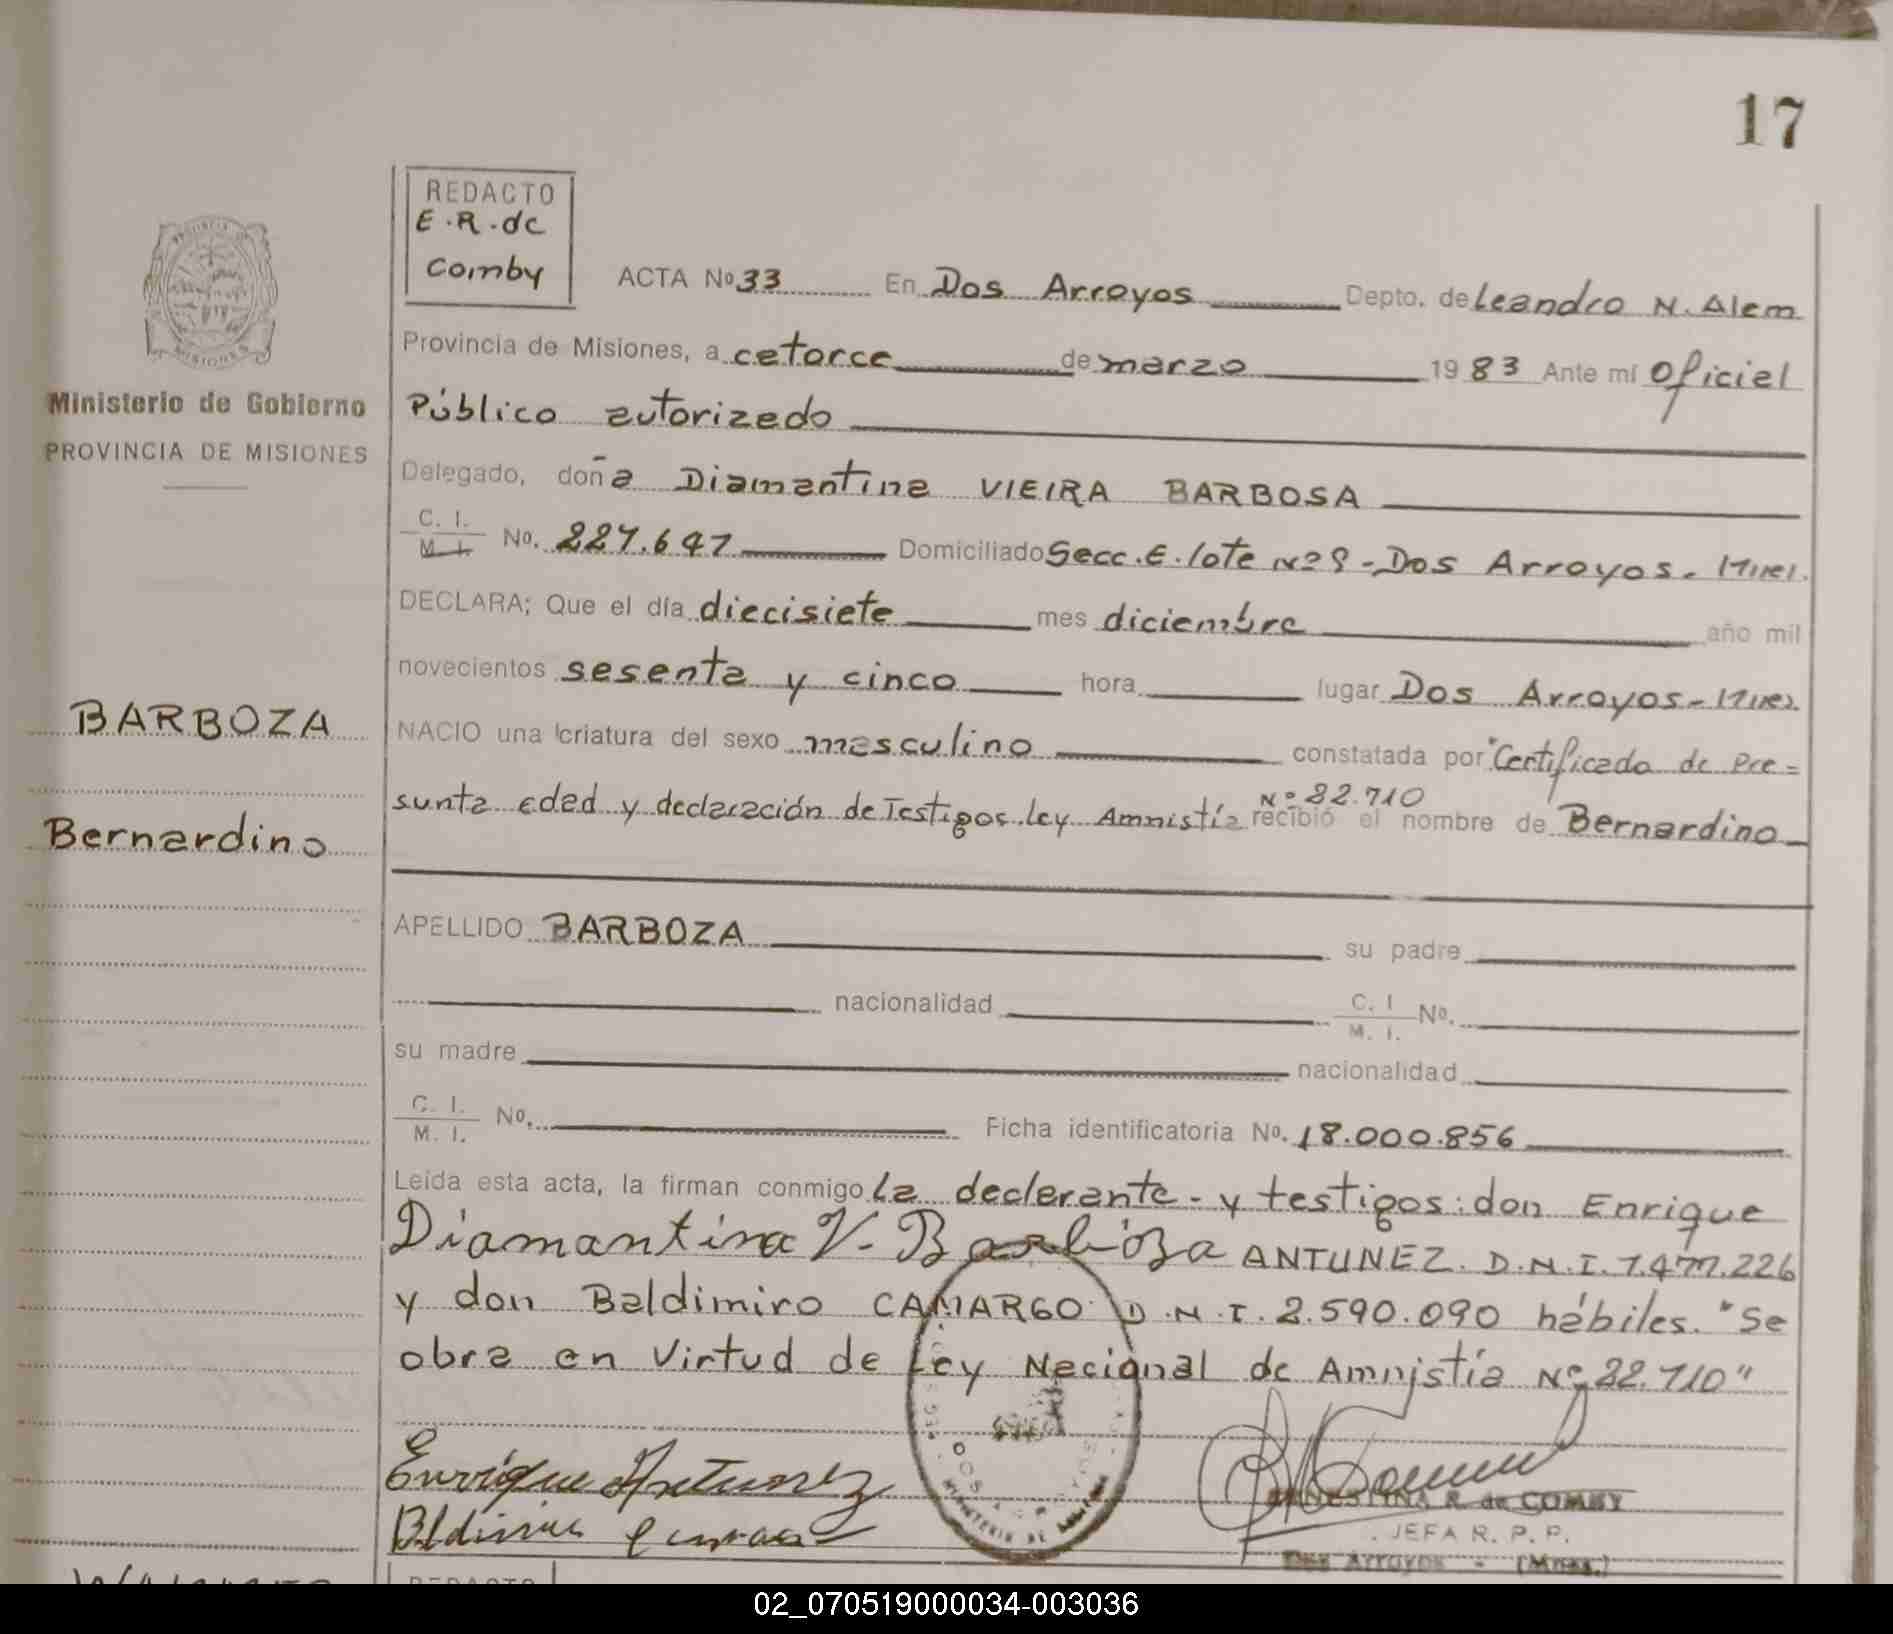 17
REDACTO
E.R.de
Comby
ACTA Nº 33 En Dos Arroyos Depto. de Leandro N. Alem
Provincia de Misiones, a catorce de marzo 1983 Ante mí Oficial
Público autorizado
Ministerio de Gobierno
PROVINCIA DE MISIONES
Delegado, doña Diamantina VIEIRA BARBOSA
C. I.
M. I. No. 227.647 Domiciliado Secc. E. lote Nº 9 - Dos Arroyos -
DECLARA; Que el día diecisiete mes diciembre año mil
novecientos sesenta y cinco hora lugar Dos Arroyos -
BARBOZA
NACIO una criatura del sexo masculino constatada por "Certificado de Pre=
sunta edad y declaración de Testigos. Ley Amnistía Nº 22.710 recibió el nombre de Bernardino
Bernardino
APELLIDO BARBOZA su padre
nacionalidad C. I
M. I. No.
su madre nacionalidad
C. I.
M. I. No. Ficha identificatoria No. 18.000.856
Leída esta acta, la firman conmigo La declarante - y testigos: don Enrique
Diamantina V. Barboza ANTUNEZ. D.N.I. 7.477.226
y don Baldimiro CAMARGO D.N.I. 2.590.090 hábiles. "Se
obra en Virtud de Ley Nacional de Amnistía Nº 22.710"
Enrique Antunez
ERNESTINA R. de COMBY
JEFA R. P. P.
Dos Arroyos - (Mnes.)
MINISTERIO DE
REDACTO
02_070519000034-003036